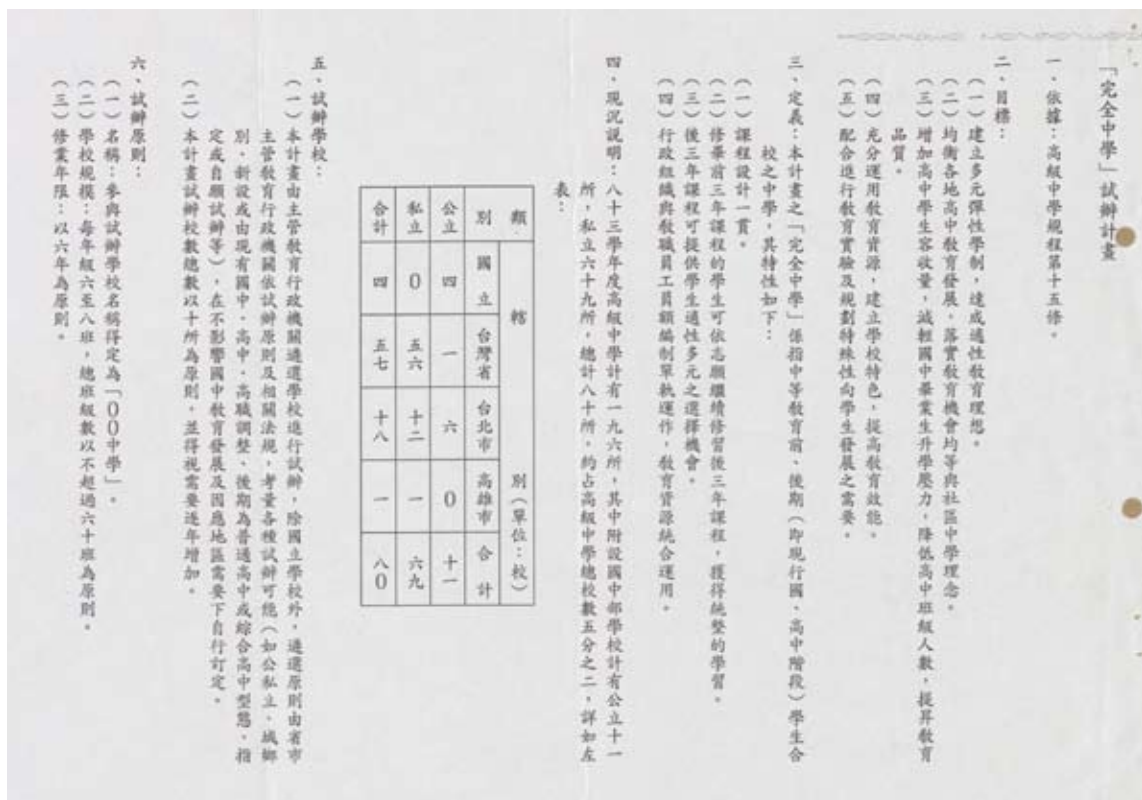 「完全中學」試辦計畫
一、依據：高級中學規程第十五條。
二、目標：
（一）建立多元彈性學制，達成適性教育理想。
（二）均衡各地高中教育發展，落實教育機會均等與社區中學理念。
（三）增加高中學生容收量，減輕國中畢業生升學壓力，降低高中班級人數，提昇教育
品質。
（四）充分運用教育資源，建立學校特色，提高教育效能。
（五）配合進行教育實驗及規劃特殊性向學生發展之需要。
三、定義：本計畫之「完全中學」係指中等教育前、後期（即現行國、高中階段）學生合
校之中學，其特性如下：
（一）課程設計一貫。
（二）修畢前三年課程的學生可依志願繼續修習後三年課程，獲得統整的學習。
（三）後三年課程可提供學生適性多元之選擇機會。
（四）行政組織與教職員工員額編制單軌運作，教育資源統合運用。
四、現況說明：八十三學年度高級中學計有一九六所，其中附設國中部學校計有公立十一
所，私立六十九所，總計八十所，約占高級中學總校數五分之二，詳如左
表：
類別 轄別（單位：校）
國立 台灣省 台北市 高雄市 合計
公立 四 一 六 0 十一
私立 0 五六 十二 一 六九
合計 四 五七 十八 一 八0
五、試辦學校：
（一）本計畫由主管教育行政機關遴選學校進行試辦，除國立學校外，遴選原則由省市
主管教育行政機關依試辦原則及相關法規，考量各種試辦可能（如公私立、城鄉
別、新設或由現有國中、高中、高職調整、後期為普通高中或綜合高中型態、指
定或自願試辦等），在不影響國中教育發展及因應地區需要下自行訂定。
（二）本計畫試辦校數總數以十所為原則，並得視需要逐年增加。
六、試辦原則：
（一）名稱：參與試辦學校名稱得定為「00中學」。
（二）學校規模：每年級六至八班，總班級數以不超過六十班為原則。
（三）修業年限：以六年為原則。